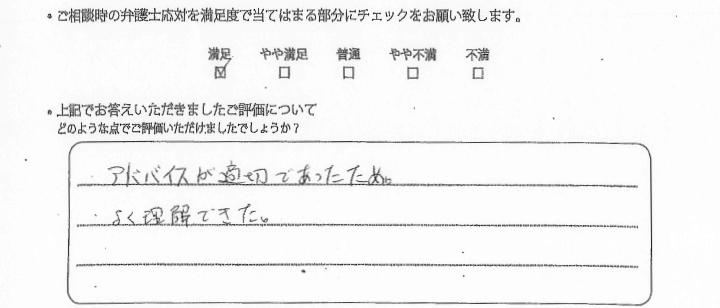 ・ご相談時の弁護士応対を満足度で当てはまる部分にチェックをお願い致します。
満足 やや満足 普通 やや不満 不満
☑ □ □ □ □
・上記でお答えいただきましたご評価について
どのような点でご評価いただけましたでしょうか？
アドバイスが適切であったため、
よく理解できた。